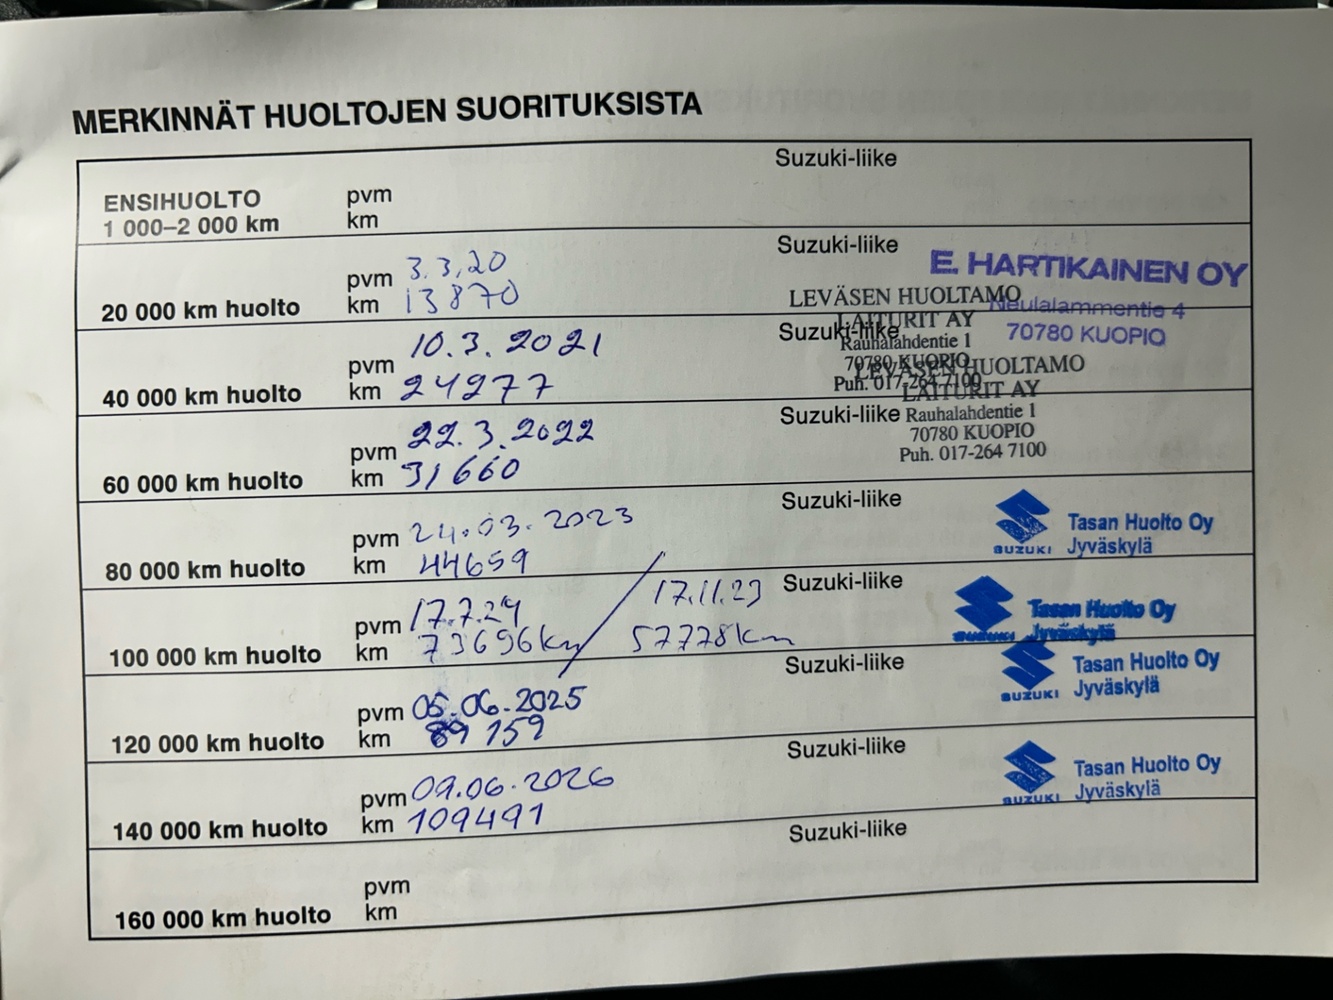 MERKINNÄT HUOLTOJEN SUORITUKSISTA
Suzuki-liike
ENSIHUOLTO
1 000–2 000 km
pvm
km
Suzuki-liike
20 000 km huolto
pvm 3.3.20
km 13870
E. HARTIKAINEN OY
Neulalammentie 4
70780 KUOPIO
LEVÄSEN HUOLTAMO
LAITURIT AY
Rauhalahdentie 1
70780 KUOPIO
Puh. 017-264 7100
Suzuki-liike
40 000 km huolto
pvm 10.3.2021
km 24277
LEVÄSEN HUOLTAMO
LAITURIT AY
Rauhalahdentie 1
70780 KUOPIO
Puh. 017-264 7100
Suzuki-liike
60 000 km huolto
pvm 22.3.2022
km 31660
Suzuki-liike
80 000 km huolto
pvm 24.03.2023
km 44659
SUZUKI
Tasan Huolto Oy
Jyväskylä
Suzuki-liike
100 000 km huolto
pvm 17.7.24 / 17.11.23
km 73696km / 57778km
SUZUKI
Tasan Huolto Oy
Jyväskylä
Suzuki-liike
120 000 km huolto
pvm 05.06.2025
km 89 159
SUZUKI
Tasan Huolto Oy
Jyväskylä
Suzuki-liike
140 000 km huolto
pvm 09.06.2026
km 109491
SUZUKI
Tasan Huolto Oy
Jyväskylä
Suzuki-liike
160 000 km huolto
pvm
km